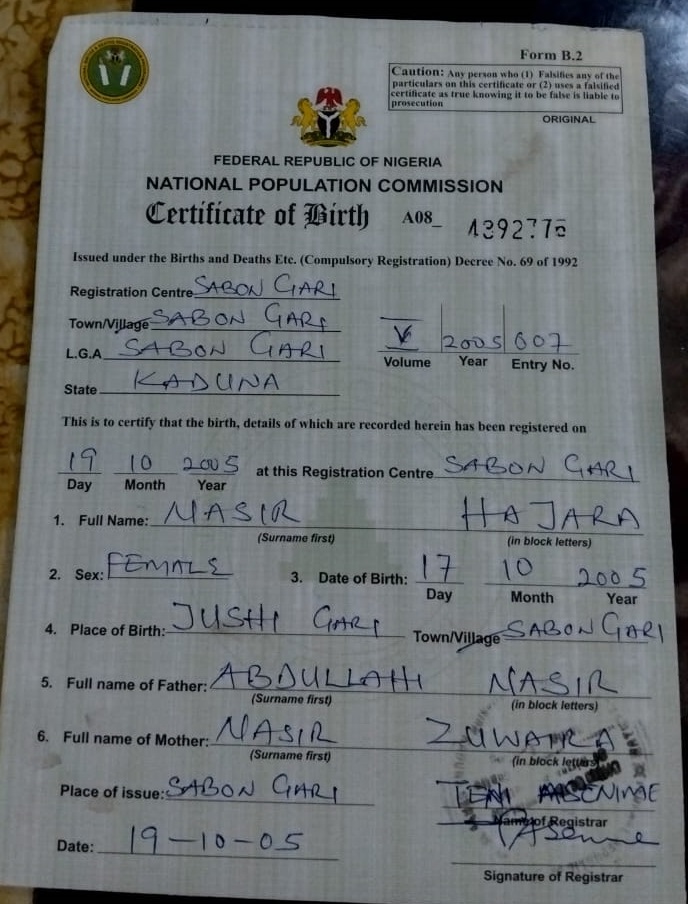 Form B.2
Caution: Any person who (1) Falsifies any of the
particulars on this certificate or (2) uses a falsified
certificate as true knowing it to be false is liable to
prosecution
ORIGINAL
FEDERAL REPUBLIC OF NIGERIA
NATIONAL POPULATION COMMISSION
Certificate of Birth A08_
Issued under the Births and Deaths Etc. (Compulsory Registration) Decree No. 69 of 1992
Registration Centre SABON GARI
Town/Village SABON GARI
L.G.A SABON GARI
V 2005 007
Volume Year Entry No.
State KADUNA
This is to certify that the birth, details of which are recorded herein has been registered on
19 10 2005 at this Registration Centre SABON GARI
Day Month Year
1. Full Name: NASIR HAJARA
(Surname first) (in block letters)
2. Sex: FEMALE 3. Date of Birth: 17 10 2005
Day Month Year
4. Place of Birth: JUSHI GARI Town/Village SABON GARI
5. Full name of Father: ABDULLAHI NASIR
(Surname first) (in block letters)
6. Full name of Mother: NASIR ZUWAIRA
(Surname first) (in block letters)
Place of issue: SABON GARI
Name of Registrar
Date: 19-10-05
Signature of Registrar